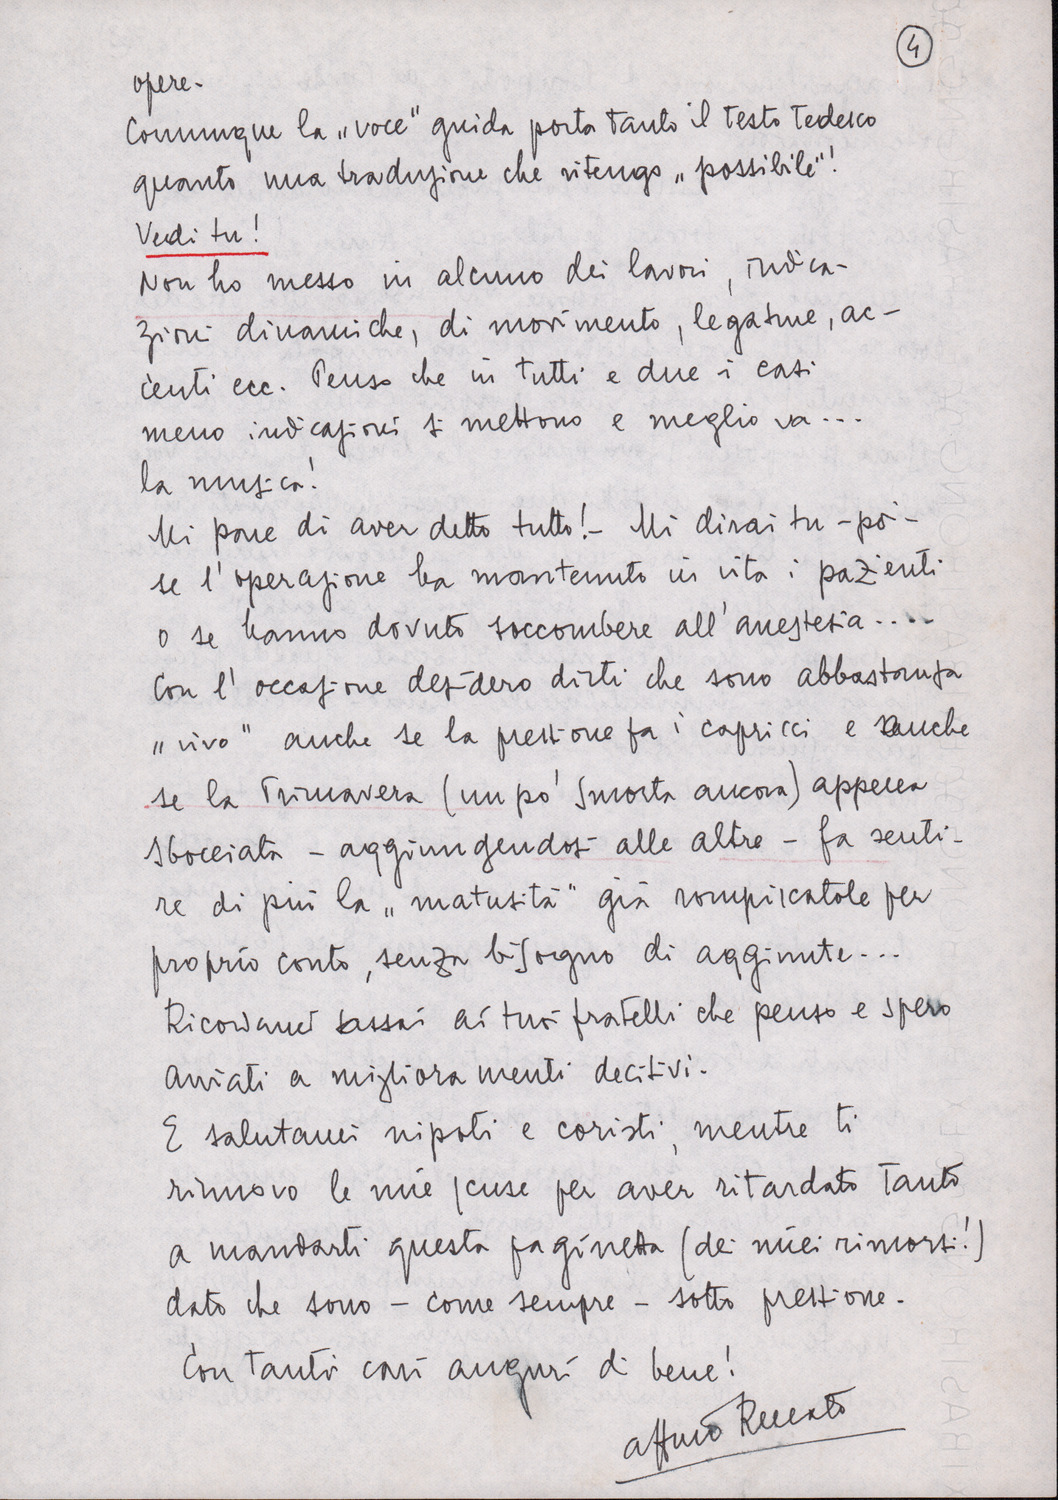 4
opere-
Comunque la „voce" guida porta tanto il testo tedesco
quanto una traduzione che ritengo „possibile"!
Vedi tu!
Non ho messo in alcuno dei lavori, indica-
zioni dinamiche, di movimento, legature, ac-
centi ecc. Penso che in tutti e due i casi
meno indicazioni si mettono e meglio va...
la musica!
Mi pare di aver detto tutto!- Mi dirai tu -poi-
se l'operazione ha mantenuto in vita i pazienti
o se hanno dovuto soccombere all'anestesia....
Con l'occasione desidero dirti che sono abbastanza
„vivo" anche se la pressione fa i capricci e anche
se la Primavera (un pò smorta ancora) appena
sbocciata - aggiungendosi alle altre - fa senti-
re di più la „matusità" già rompiscatole per
proprio conto, senza bisogno di aggiunte...
Ricordami assai ai tuoi fratelli che penso e spero
avviati a miglioramenti decisivi.
E salutami nipoti e coristi, mentre ti
rinnovo le mie scuse per aver ritardato tanto
a mandarti questa paginetta (dei miei rimorsi!)
dato che sono - come sempre - sotto pressione.
Con tanti cari auguri di bene!
aff.mo